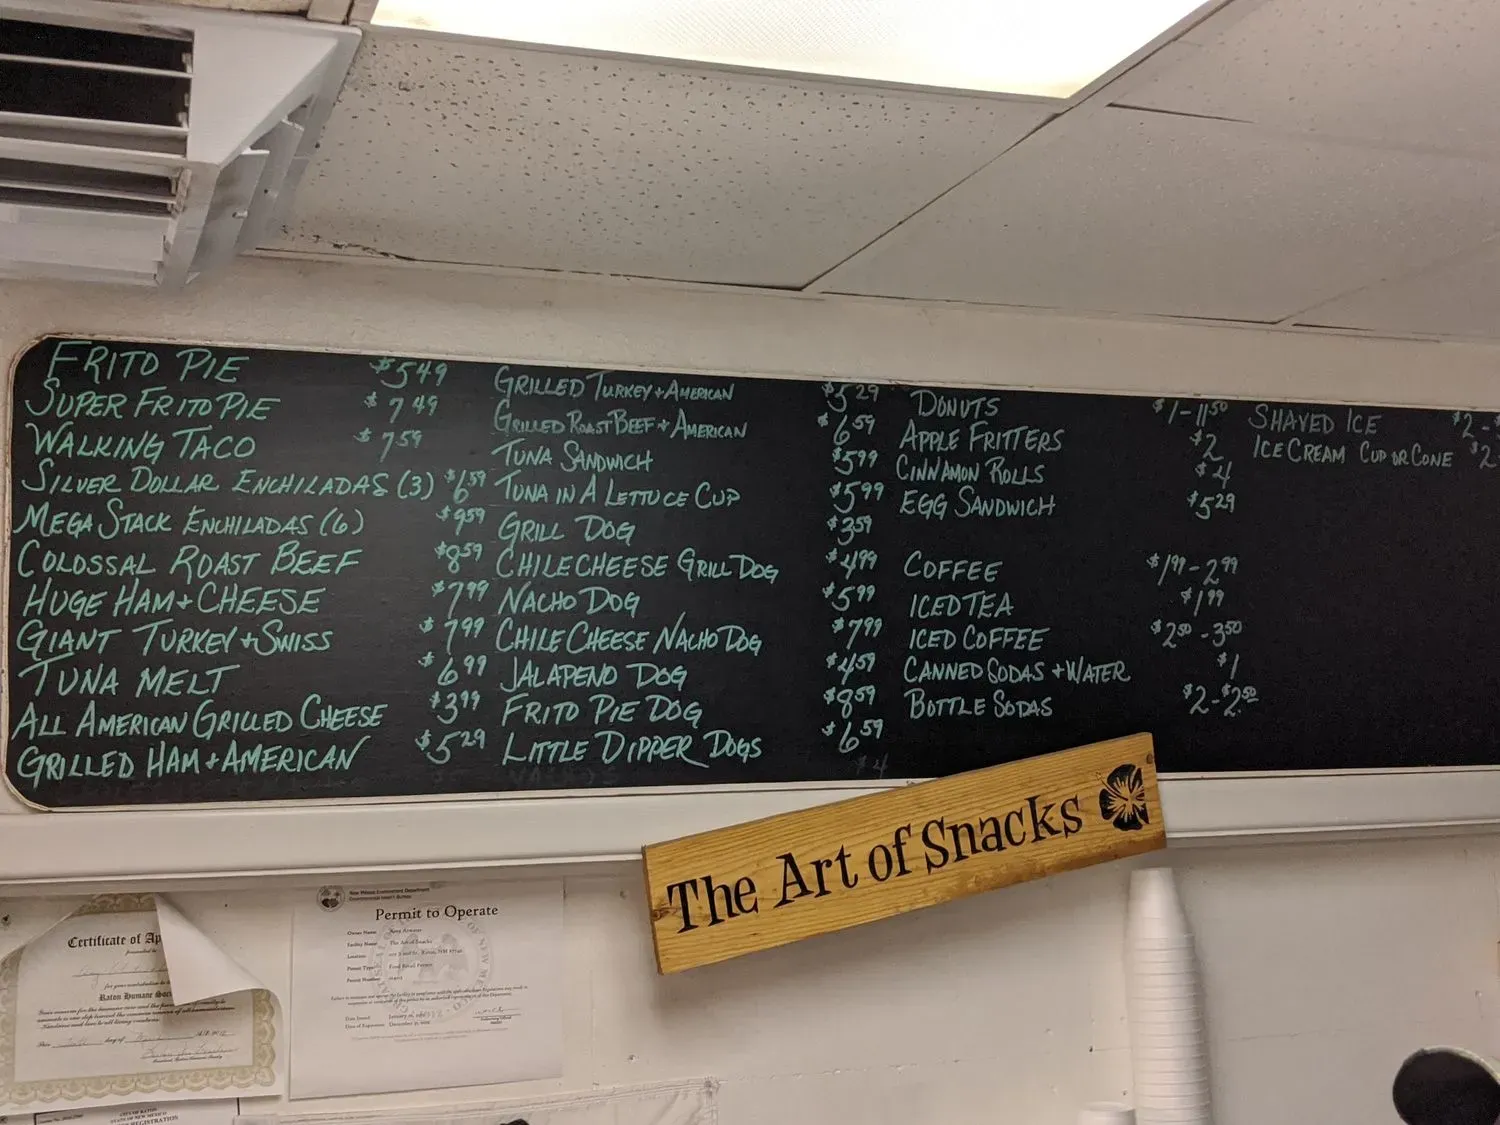 FRITO PIE $5.49
SUPER FRITO PIE $7.49
WALKING TACO $7.59
SILVER DOLLAR ENCHILADAS (3) $6.59
MEGA STACK ENCHILADAS (6) $9.59
COLOSSAL ROAST BEEF $8.59
HUGE HAM + CHEESE $7.99
GIANT TURKEY + SWISS $7.99
TUNA MELT $6.99
ALL AMERICAN GRILLED CHEESE $3.99
GRILLED HAM + AMERICAN $5.29
GRILLED TURKEY + AMERICAN $5.29
GRILLED ROAST BEEF + AMERICAN $6.59
TUNA SANDWICH $5.99
TUNA IN A LETTUCE CUP $5.99
GRILL DOG $3.59
CHILE CHEESE GRILL DOG $4.99
NACHO DOG $5.99
CHILE CHEESE NACHO DOG $7.99
JALAPENO DOG $4.59
FRITO PIE DOG $8.59
LITTLE DIPPER DOGS $6.59
DONUTS $1-11.50
APPLE FRITTERS $2
CINNAMON ROLLS $4
EGG SANDWICH $5.29
COFFEE $1.99-2.99
ICED TEA $1.99
ICED COFFEE $2.50-3.50
CANNED SODAS + WATER $1
BOTTLE SODAS $2-$2.50
SHAVED ICE $2-
ICE CREAM CUP OR CONE $2
The Art of Snacks
Certificate of
presented to
Raton Humane
New Mexico Environment Department
Permit to Operate
Owner Name:
Facility Name: The Art of Snacks
Location:
Permit Type:
Permit Number:
Date Issued:
Date of Expiration:
CITY OF RATON
STATE OF NEW MEXICO